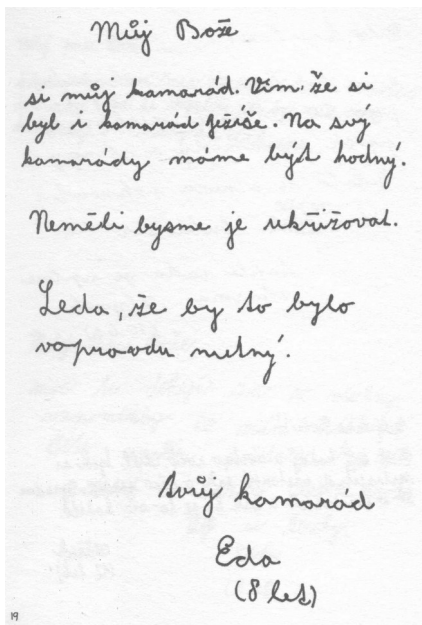 Můj Bože
si můj kamarád. Vím že si
byl i kamarád Ježíše. Na svý
kamarády máme být hodný.
Neměli bysme je ukřižovat.
Leda, že by to bylo
vopravdu nutný.
tvůj kamarád
Eda
(8 let)
19